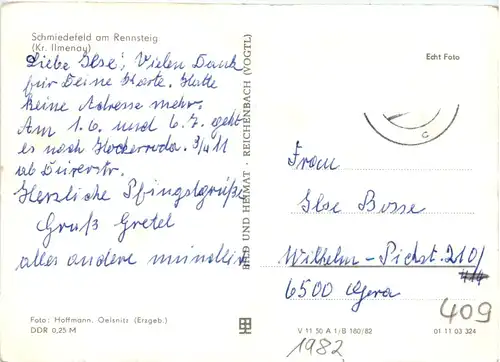 Schmiedefeld am Rennsteig
(Kr. Ilmenau)
Liebe Ilse! Vielen Dank
für Deine Karte. Hatte
keine Adresse mehr.
Am 1.6. und 6.7. geht
es nach 3/4 11
ab Dürerstr.
Herzliche Pfingstgrüße
Gruß Gretel
alles andere mündlich
Foto: Hoffmann, Oelsnitz (Erzgeb.)
DDR 0,25 M
BILD UND HEIMAT · REICHENBACH (VOGTL)
Echt Foto
Frau
Ilse Bosse
Wilhelm-Pieck-st. 210/
6500 Gera
409
V 11 50 A 1/B 160/82 01 11 03 324
1982